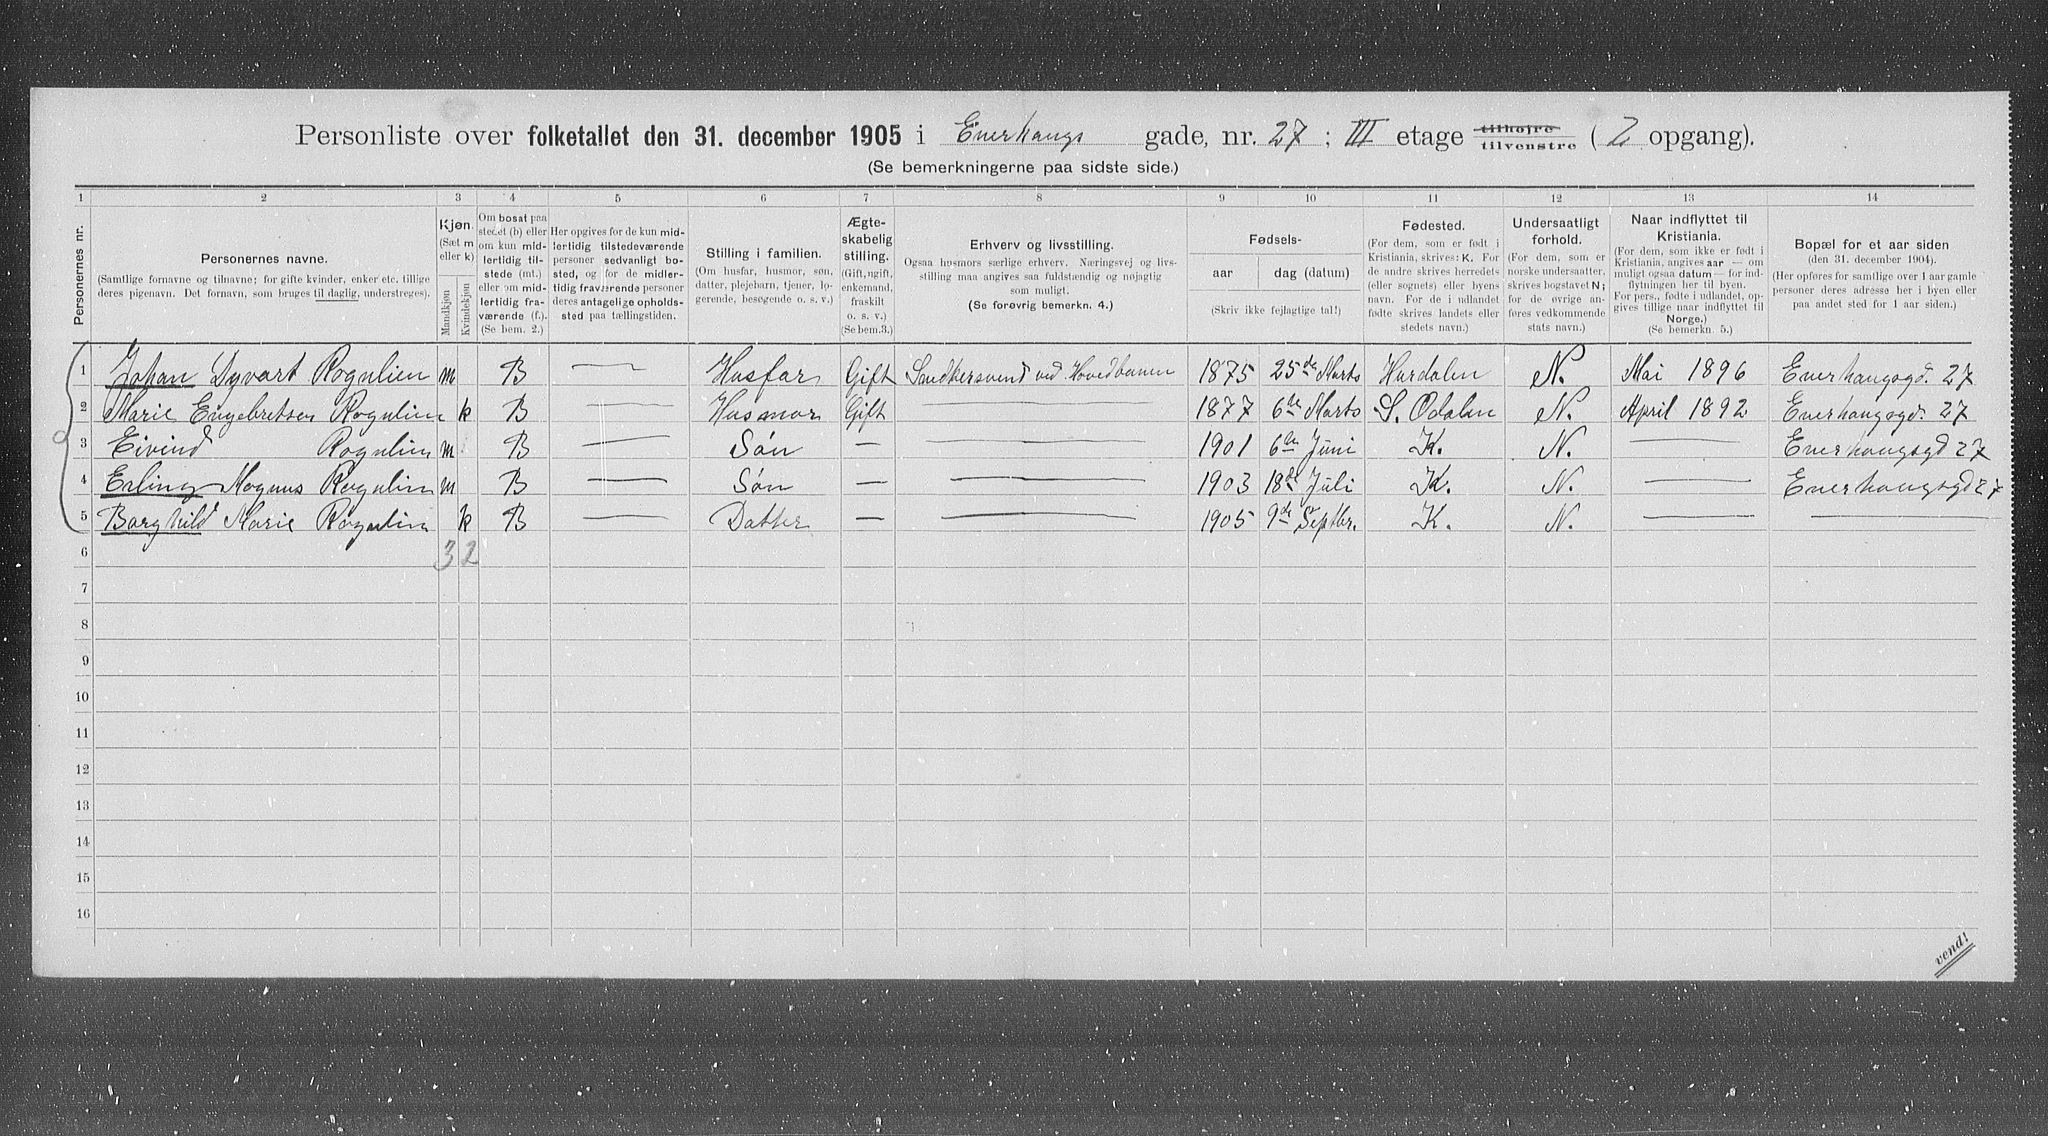 Personliste over folketallet den 31. december 1905 i Enerhaugs gade, nr. 27 ; III etage tilhøjre tilvenstre ( 2 opgang).
(Se bemerkningerne paa sidste side.)
1 2 3 4 5 6 7 8 9 10 11 12 13 14
Personernes nr.
Personernes navne.
(Samtlige fornavne og tilnavne; for gifte kvinder, enker etc. tillige
deres pigenavn. Det fornavn, som bruges til daglig, understreges).
Kjøn.
(Sæt m
eller k)
Mandkjøn
Kvindekjøn
Om bosat paa
stedet (b) eller
om kun mid-
lertidig til-
stede (mt.)
eller om mid-
lertidig fra-
værende (f.).
(Se bem. 2.)
Her opgives for de kun mid-
lertidig tilstedeværende
personer sedvanligt bo-
sted, og for de midler-
tidig fraværende personer
deres antagelige opholds-
sted paa tællingstiden.
Stilling i familien.
(Om husfar, husmor, søn,
datter, plejebarn, tjener, lo-
gerende, besøgende o. s. v.)
Ægte-
skabelig
stilling.
(Gift, ugift,
enkemand,
fraskilt
o. s. v.)
(Se bem.3.)
Erhverv og livsstilling.
Ogsaa husmors særlige erhverv. Næringsvej og livs-
stilling maa angives saa fuldstændig og nøjagtig
som muligt.
(Se forøvrig bemerkn. 4.)
Fødsels-
aar dag (datum)
(Skriv ikke fejlagtige tal!)
Fødested.
(For dem, som er født i
Kristiania, skrives: K. For
de andre skrives herredets
(eller sognets) eller byens
navn. For de i udlandet
fødte skrives landets eller
stedets navn.)
Undersaatligt
forhold.
(For dem, som er
norske undersaatter,
skrives bogstavet N;
for de øvrige an-
føres vedkommende
stats navn.)
Naar indflyttet til
Kristiania.
(For dem, som ikke er født i
Kristiania, angives aar — om
muligt ogsaa datum — for ind-
flytningen her til byen.
For pers., fødte i udlandet, op-
gives tillige naar indflyttet til
Norge.)
(Se bemerkn. 5.)
Bopæl for et aar siden
(den 31. december 1904).
(Her opføres for samtlige over 1 aar gamle
personer deres adresse her i byen eller
paa andet sted for 1 aar siden.)
1 Johan Syvart Rognlien m B — Husfar Gift ved Hovedbanen 1875 25de Marts Hurdalen N. Mai 1896 Enerhaugsgd. 27
2 Marie Engebretsen Rognlien k B — Husmor Gift — 1877 6te Marts S. Odalen N. April 1892 Enerhaugsgd. 27
3 Eivind Rognlien m B — Søn — — 1901 6te Juni K. N. — Enerhaugsgd 27
4 Erling Magnus Rognlien m B — Søn — — 1903 18de Juli K. N. — Enerhaugsgd 27
5 Borghild Marie Rognlien k B — Datter — — 1905 9de Septbr. K. N. — —
6 3 2
7
8
9
10
11
12
13
14
15
16
vend!